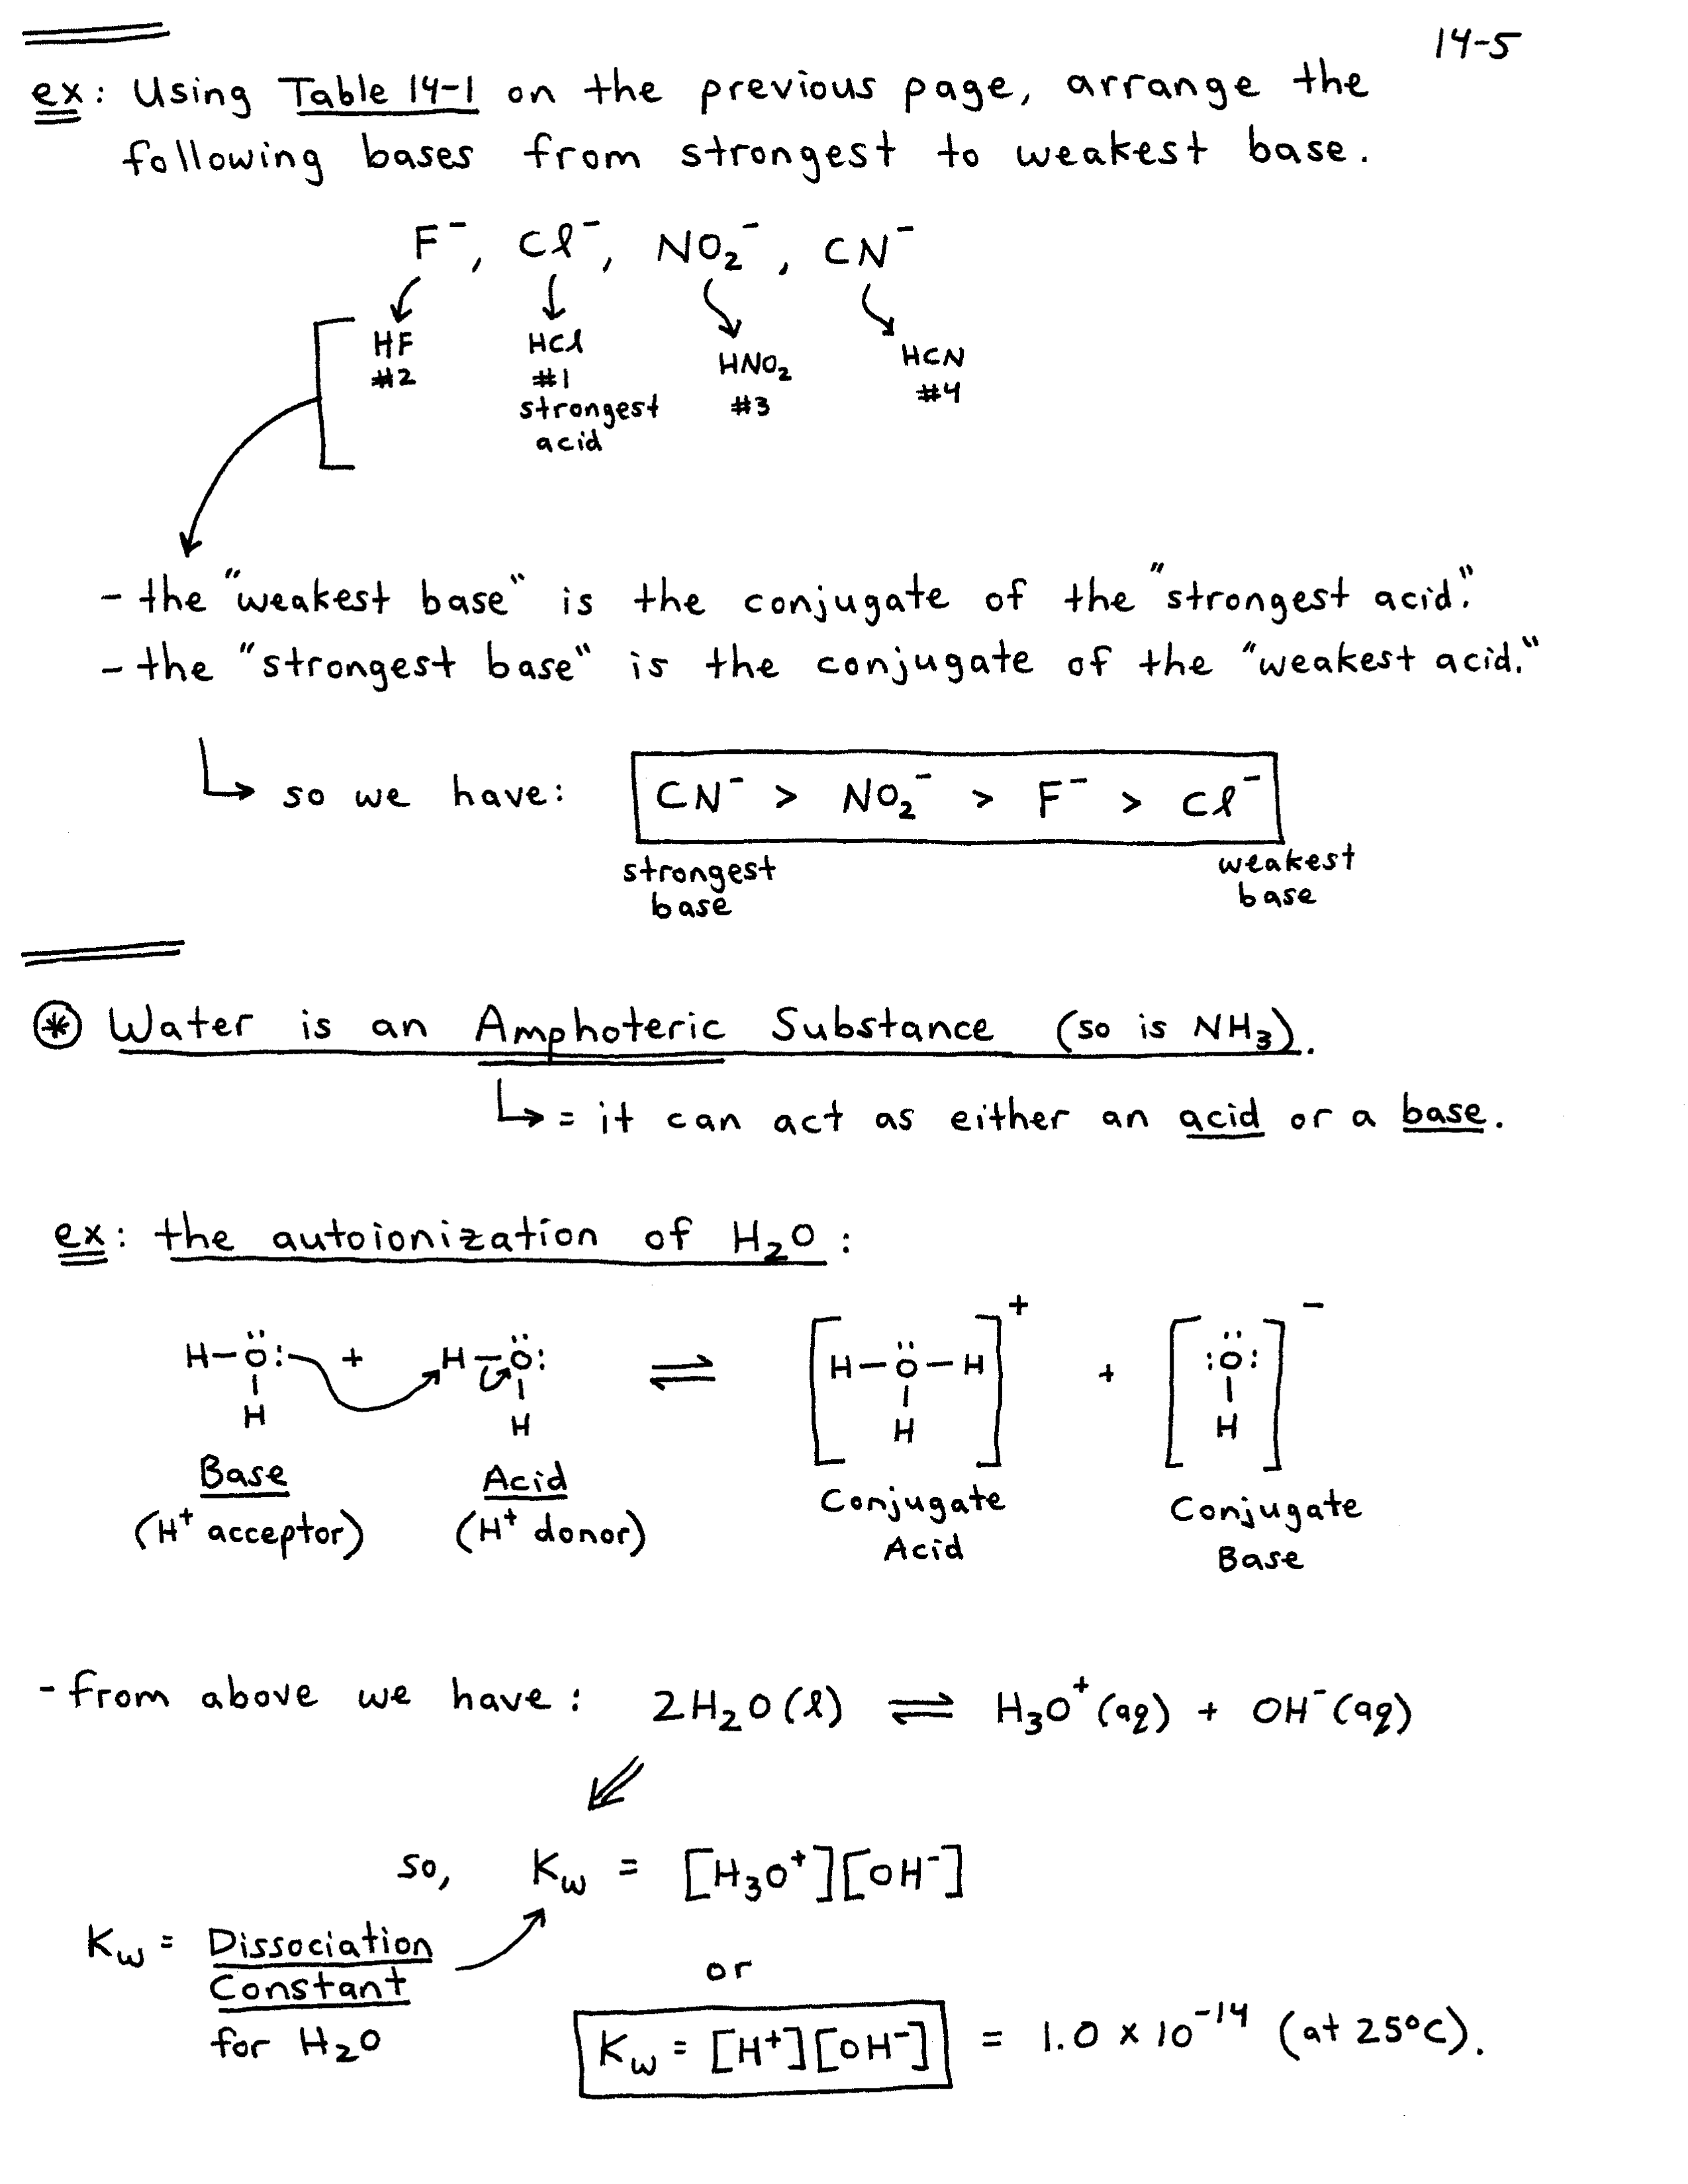 14-5
ex: Using Table 14-1 on the previous page, arrange the
following bases from strongest to weakest base.
F⁻, Cl⁻, NO₂⁻, CN⁻
HF HCl HNO₂ HCN
#2 #1 #3 #4
strongest
acid
- the "weakest base" is the conjugate of the "strongest acid."
- the "strongest base" is the conjugate of the "weakest acid."
↳ so we have: CN⁻ > NO₂⁻ > F⁻ > Cl⁻
strongest base
weakest base
⊛ Water is an Amphoteric Substance (so is NH₃).
↳ = it can act as either an acid or a base.
ex: the autoionization of H₂O:
H–Ö: + H–Ö: ⇌ [H–Ö–H]⁺ + [:Ö:]⁻
H H H H
Base Acid Conjugate Acid Conjugate Base
(H⁺ acceptor) (H⁺ donor)
- from above we have: 2H₂O(l) ⇌ H₃O⁺(aq) + OH⁻(aq)
so, Kw = [H₃O⁺][OH⁻]
Kw = Dissociation
Constant
for H₂O
or
Kw = [H⁺][OH⁻] = 1.0 × 10⁻¹⁴ (at 25°C).